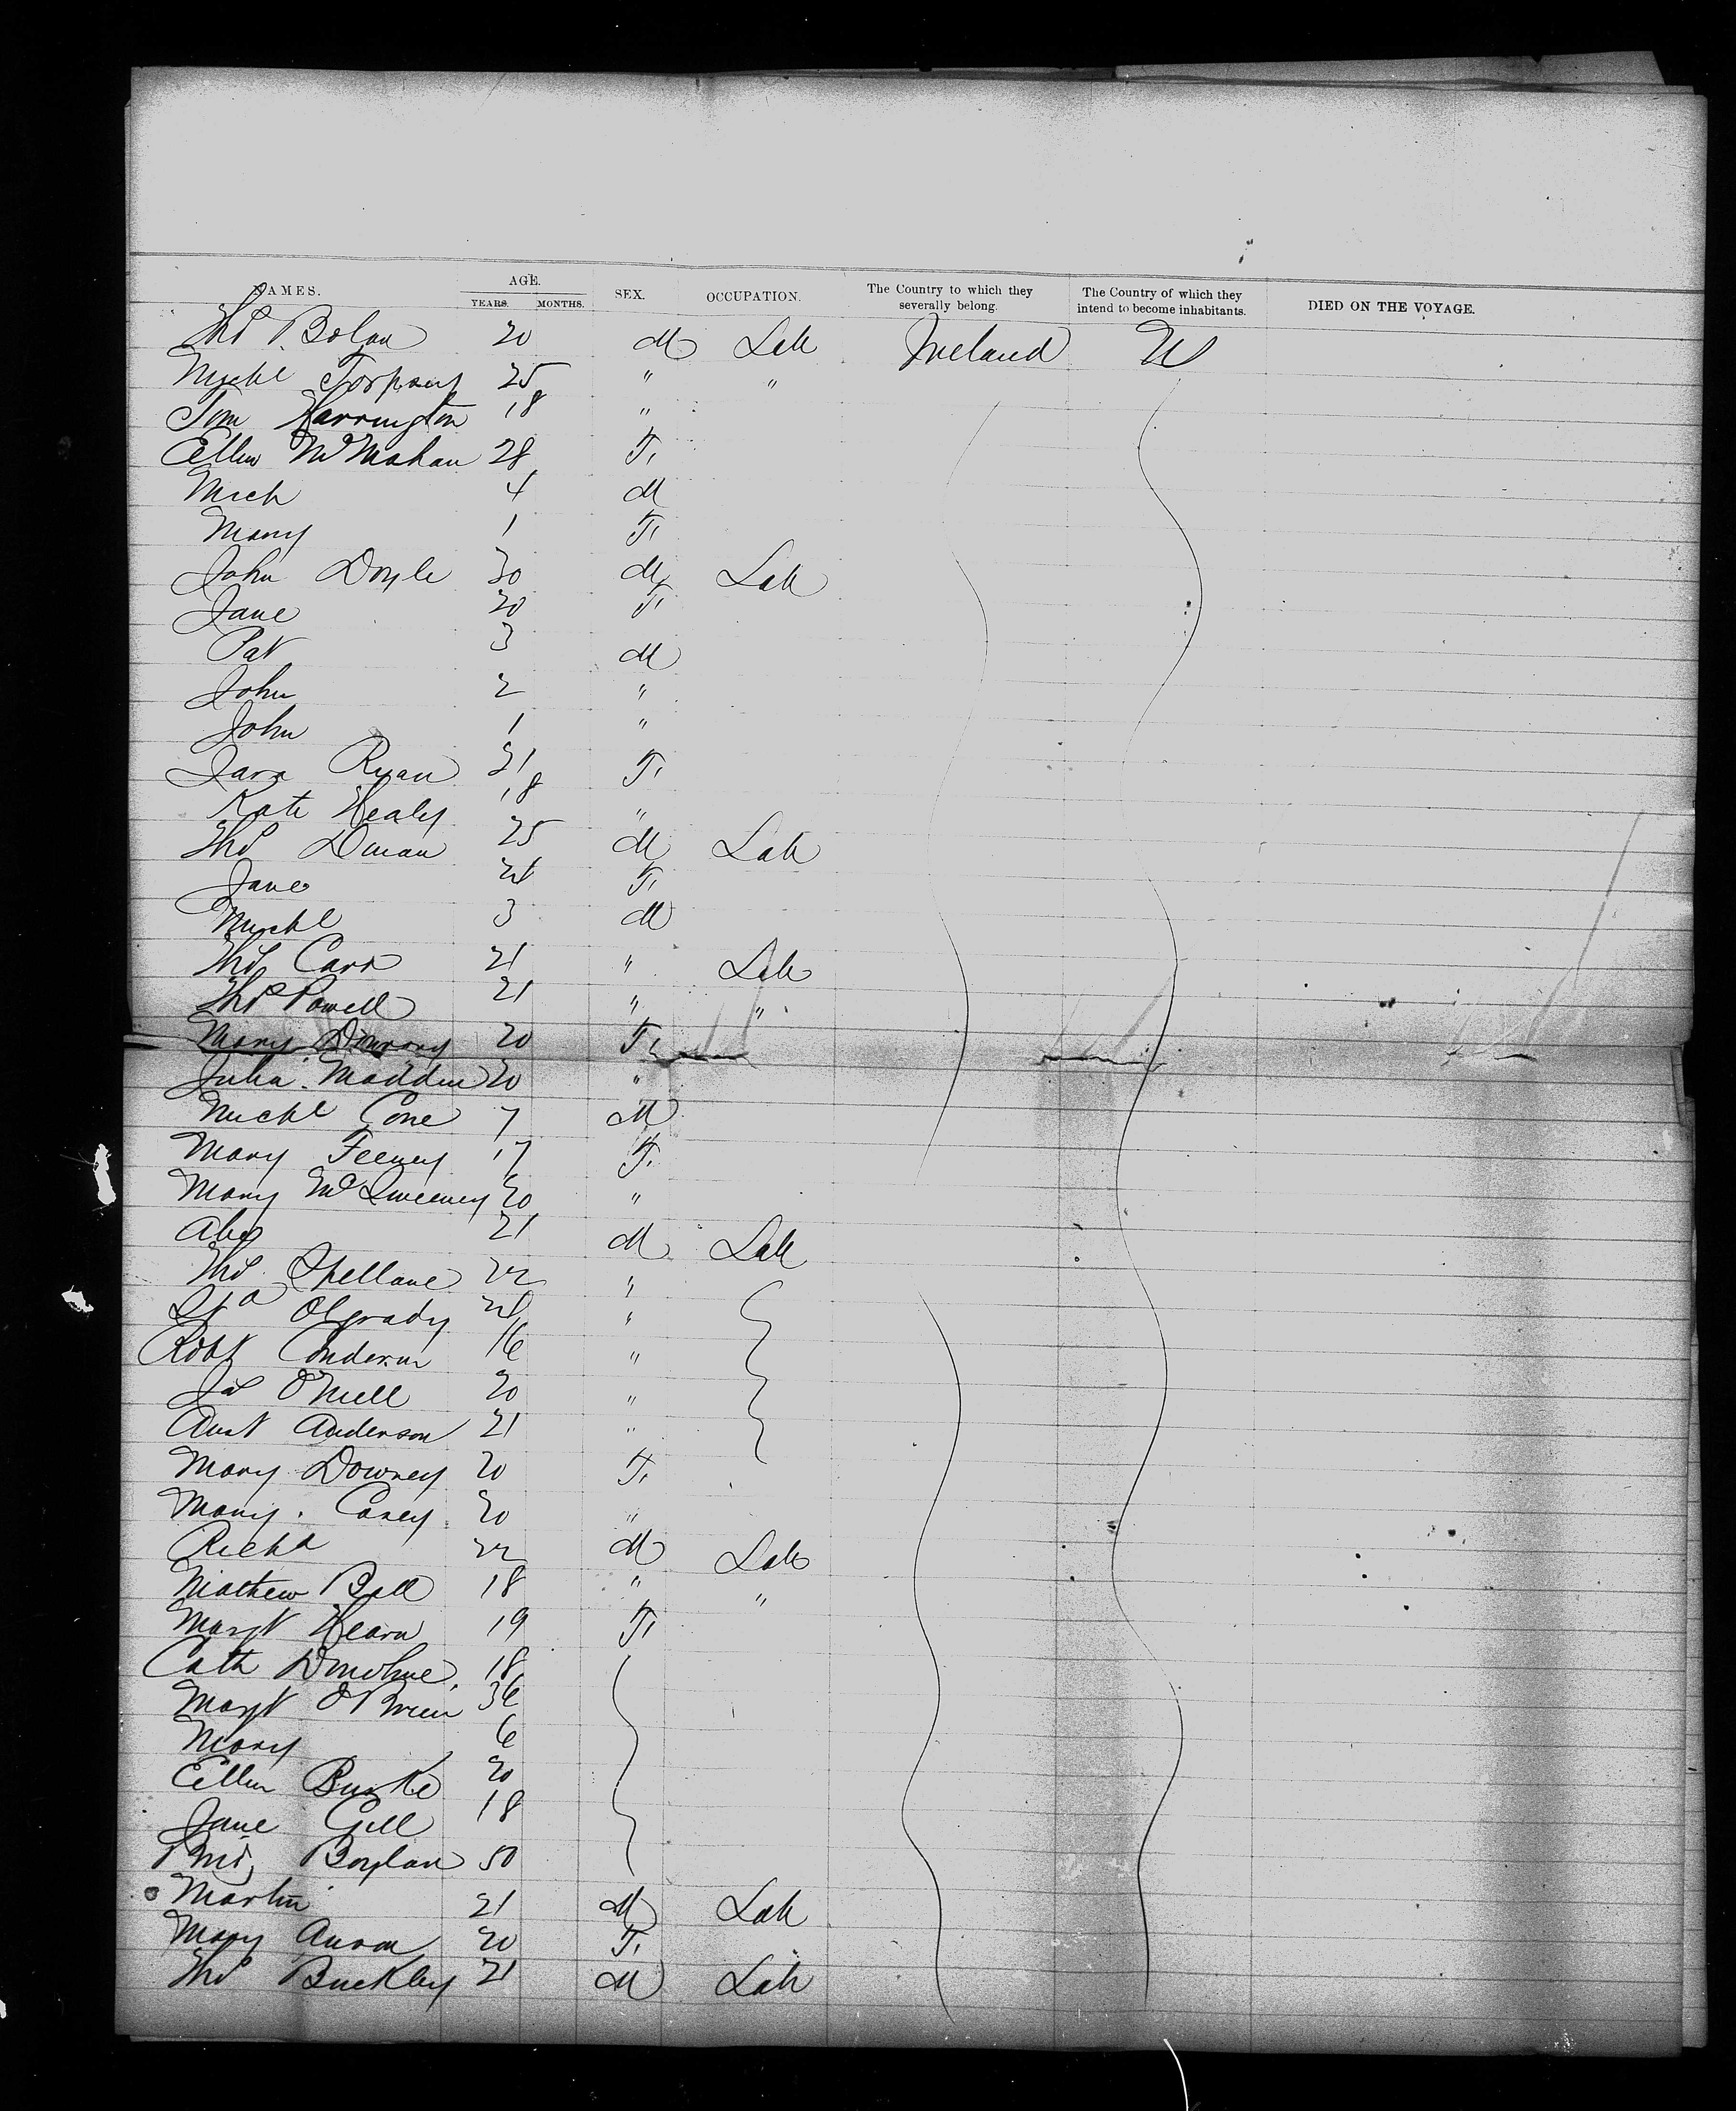 NAMES. AGE. SEX. OCCUPATION. The Country to which they severally belong. The Country of which they intend to become inhabitants. DIED ON THE VOYAGE.
YEARS. MONTHS.
Thos Bolan 20 M Lab Ireland US
Michl Torpsey 25 " "
Tom Harrington 18 "
Ellen McMahan 28 F.
Mich 4 M
Mary 1 F.
John Doyle 30 M Lab
Jane 20 F.
Pat 3 M
John 2 "
John 1 "
Ryan 21 F.
Kate Healy 18 "
Thos 25 M Lab
Jane 24 F.
Michl 3 M
Thos Carr 21 " Lab
Thos Powell 21 " "
Mary 20 F.
Julia Madden 20 "
Michl Cone 7 M
Mary Feeney 17 F.
Mary McSweeney 20 "
21 M Lab
Thos Spellane 22 "
OGrady 24 "
Robt 16 "
Jas O'Neill 20 "
Aust Anderson 21 "
Mary Downey 20 F.
Mary Casey 20 "
Richd 22 M Lab
Mathew Bell 18 " "
Margt Hearn 19 F.
Cath Donohue 18
Margt O'Brien 36
Mary 6
Ellen Burke 20
Jane Gill 18
Boylan 50
Martin 21 M Lab
Mary 20 F.
Thos Buckley 21 M Lab